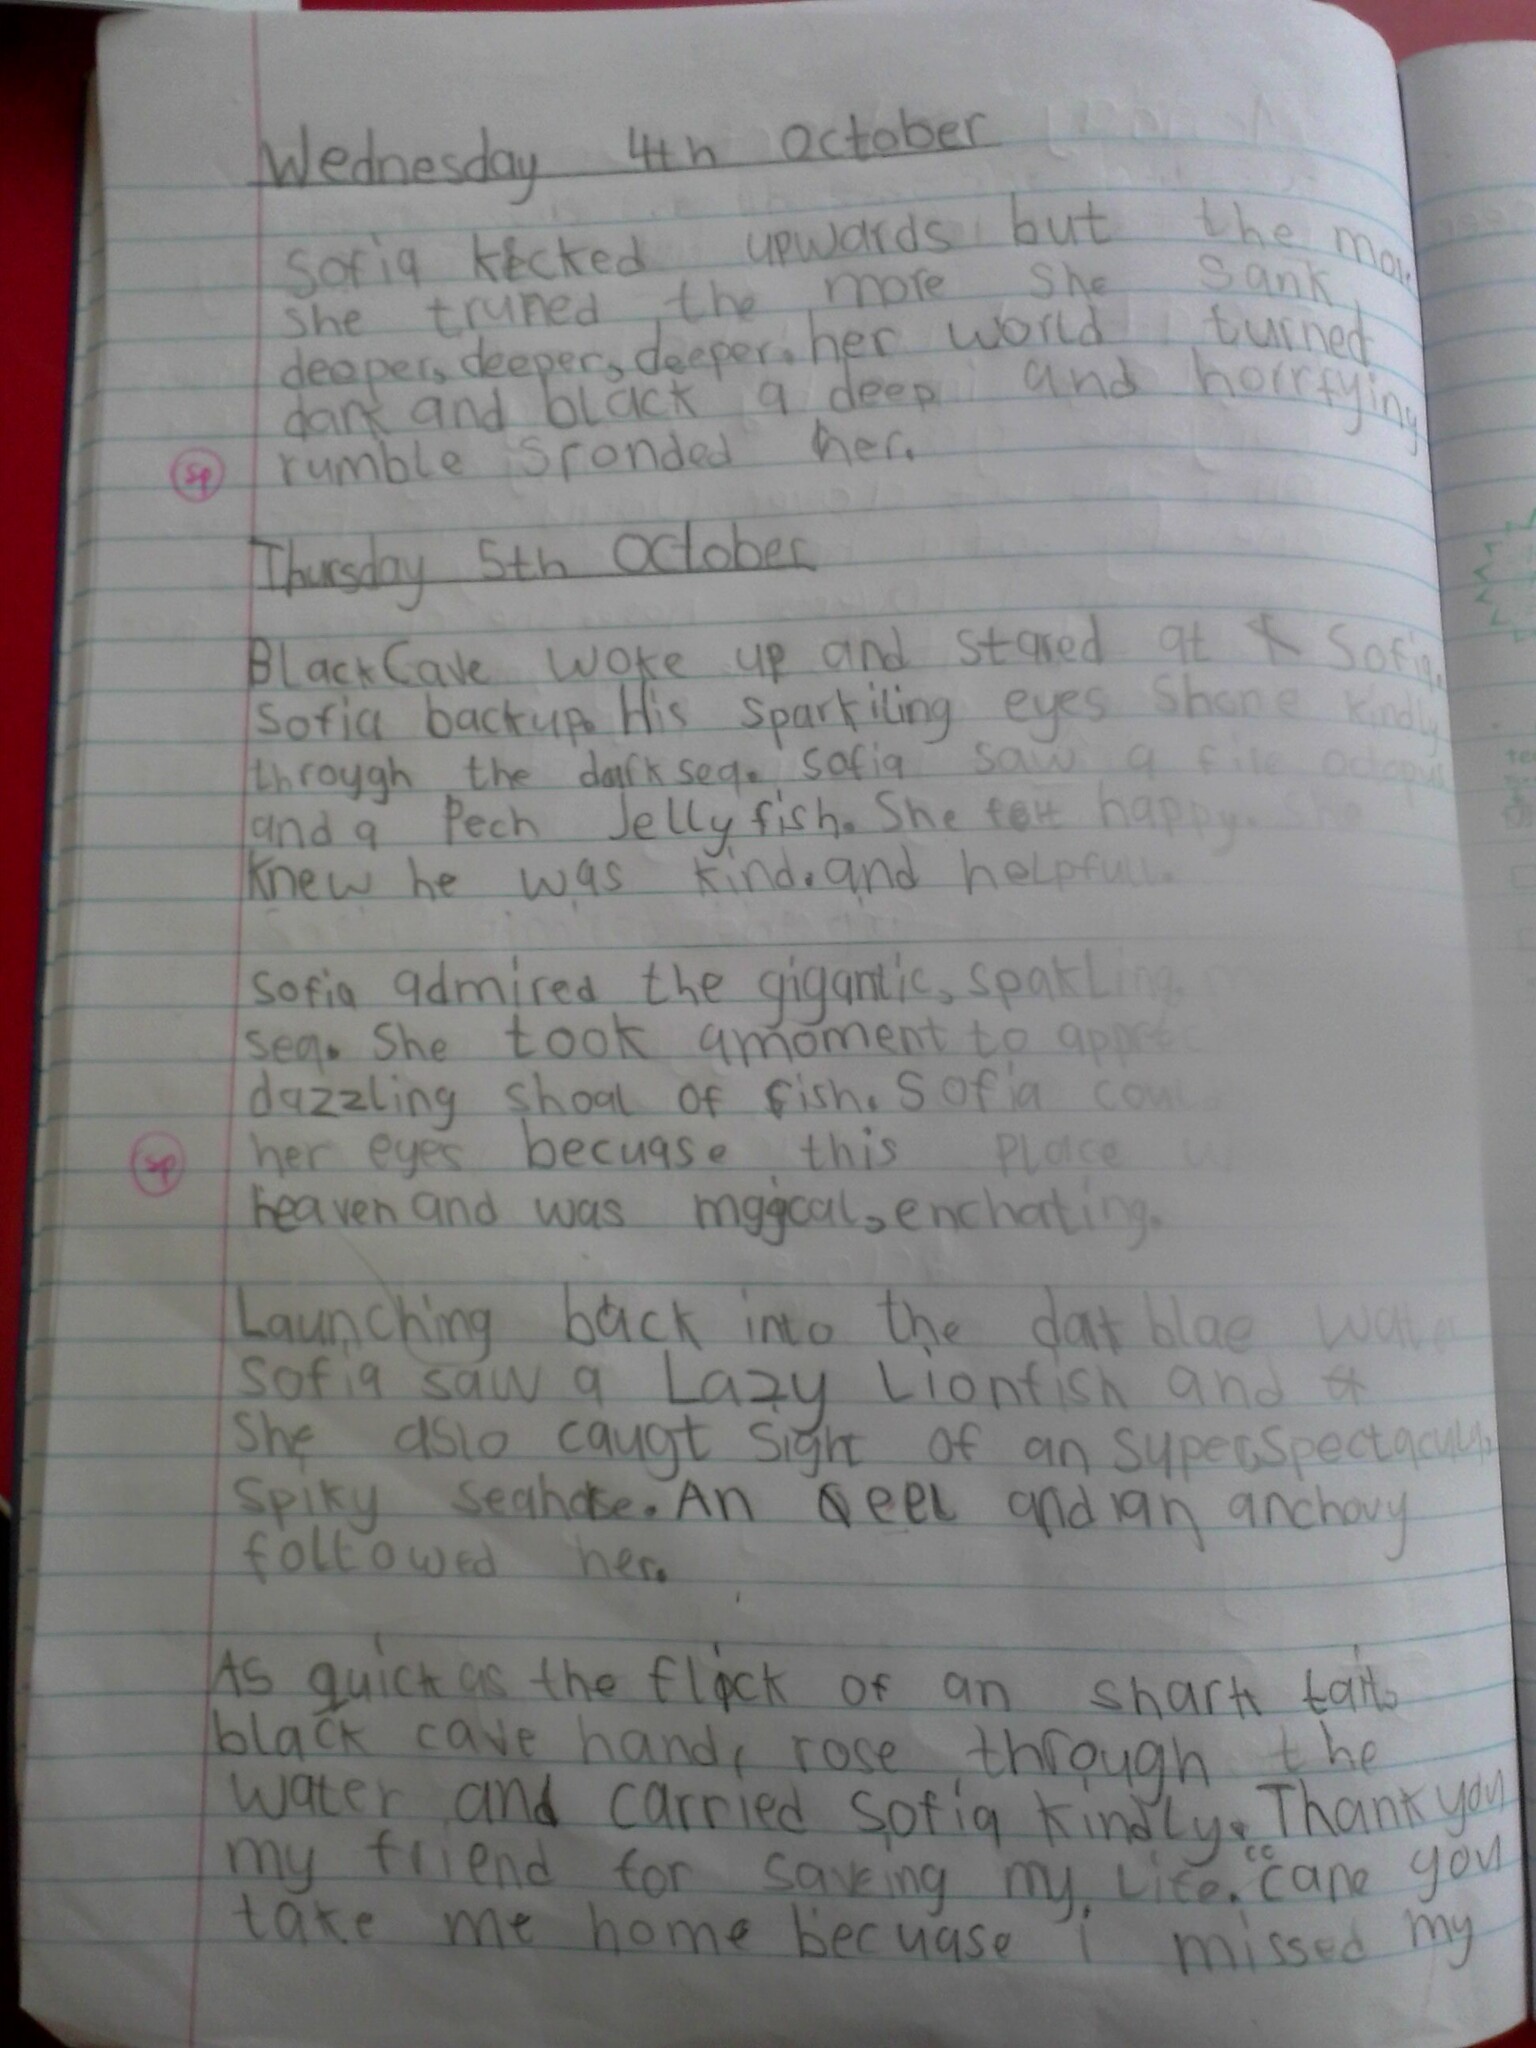 Wednesday 4th October
Sofia kicked upwards but the more
she truned the more she sank
deeper, deeper, deeper. her world turned
dark and black a deep and horrfying
sp rumble sronded her.
Thursday 5th October
BlackCave woke up and stared at Sofia.
Sofia backup. His sparkiling eyes shone kindly
through the dark sea. Sofia saw a file octopus
and a Pech Jelly fish. She felt happy. She
knew he was kind. and helpfull.
Sofia admired the gigantic, spakling
sea. She took amoment to
dazzling shoal of fish. Sofia
sp her eyes becuase this place
heaven and was magical, enchating.
Launching back into the dark blae water
Sofia saw a Lazy Lionfish and
She aslo caugt sight of an super, spectacular,
spiky seahorse. An eel and an anchovy
followed her.
As quick as the flick of an shark tail,
black cave hand, rose through the
water and carried Sofia kindly. Thank you
my friend for saveing my life. "cane you
take me home becuase i missed my